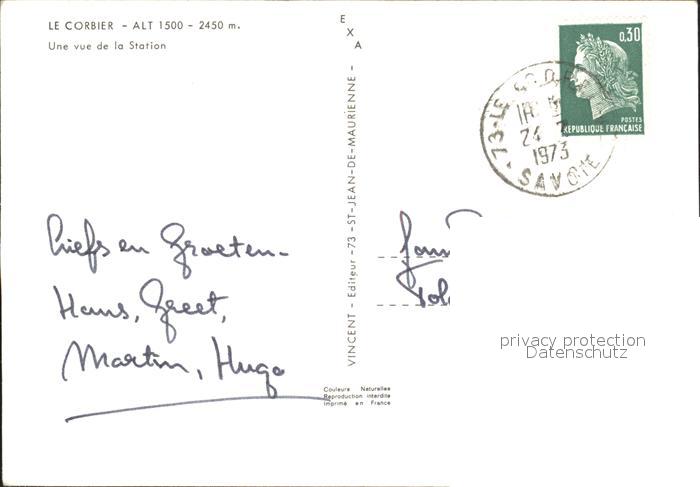 LE CORBIER - ALT 1500 - 2450 m.
Une vue de la Station
EXA
VINCENT - Editeur - 73 - ST-JEAN-DE-MAURIENNE -
0,30
POSTES
REPUBLIQUE FRANÇAISE
73-LE CORBIER
24
1973
SAVOIE
Liefs en Groeten-
Hans, Greet,
Martin, Hugo
privacy protection
Datenschutz
Couleurs Naturelles
Reproduction interdite
Imprimé en France